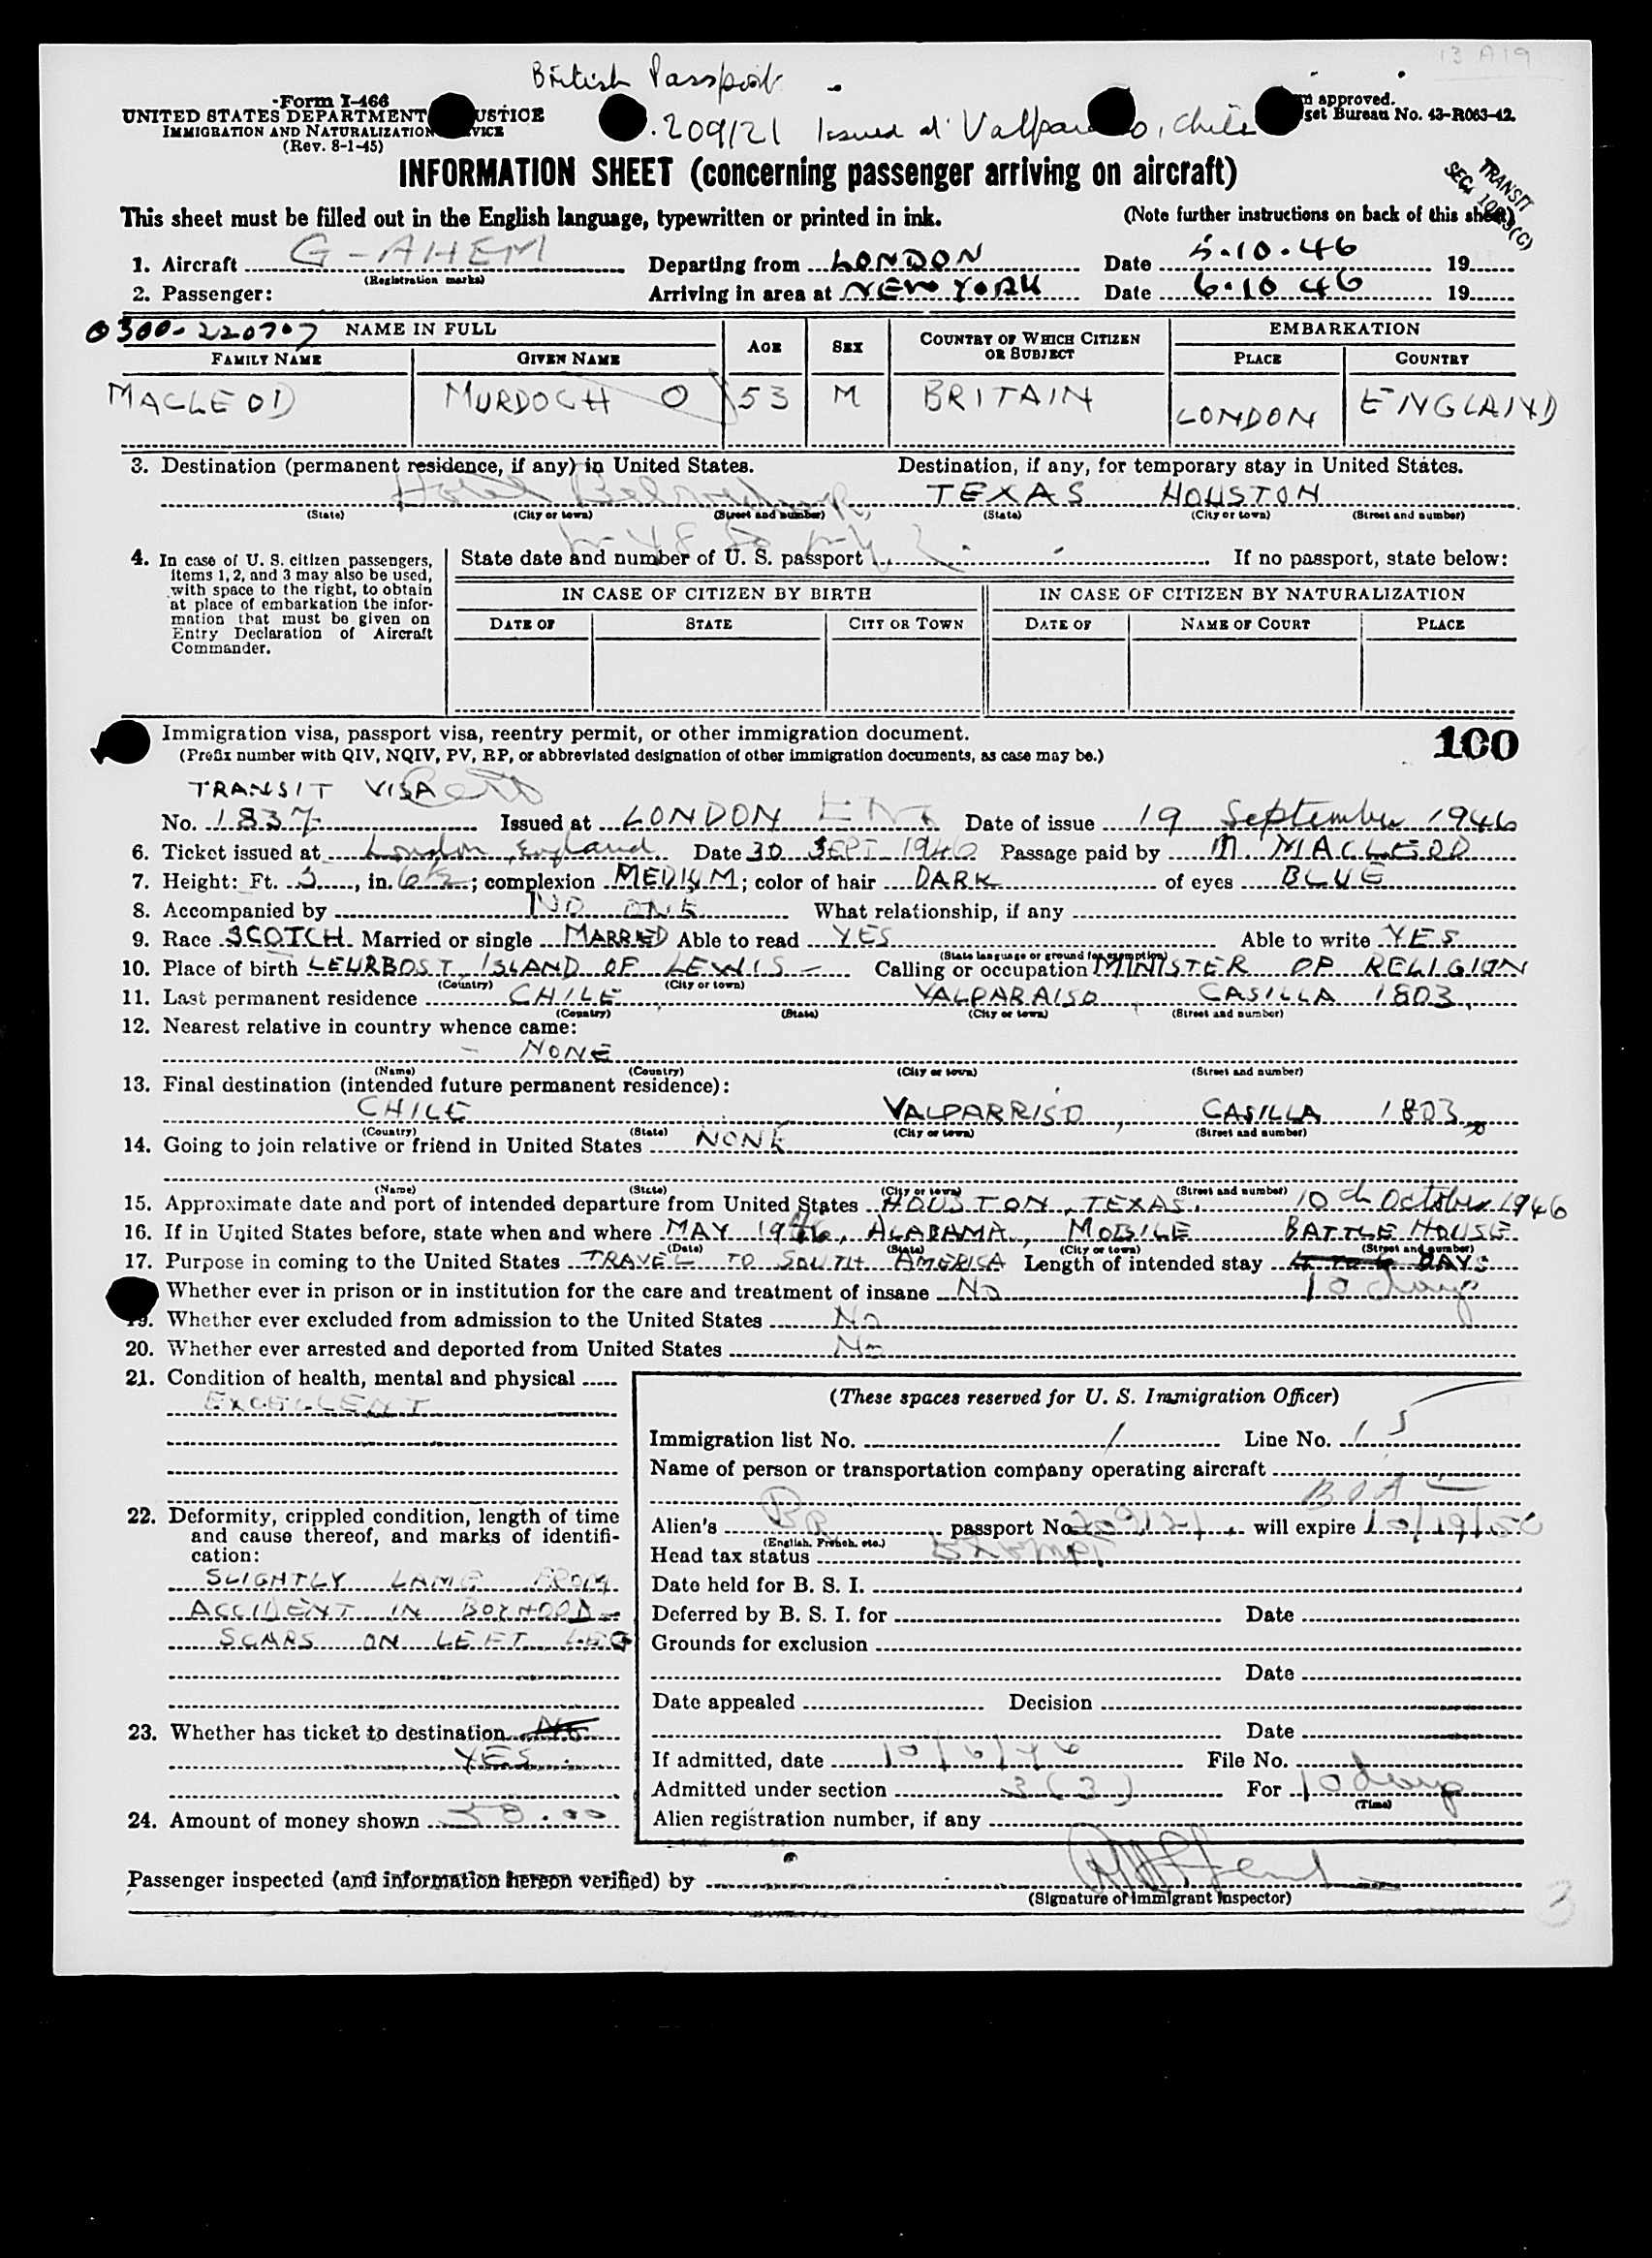 13 A19
British Passport
Form I-466
UNITED STATES DEPARTMENT USTICE
IMMIGRATION AND NATURALIZATION VICE
(Rev. 8-1-45)
.209121 Issued at Valpar o, Chile
approved.
get Bureau No. 43-R063-42.
INFORMATION SHEET (concerning passenger arriving on aircraft)
TRANSIT
SEC.
This sheet must be filled out in the English language, typewritten or printed in ink. (Note further instructions on back of this sheet)
1. Aircraft G-AHEM Departing from LONDON Date 5.10.46 19
(Registration marks)
2. Passenger: Arriving in area at NEW YORK Date 6.10 46 19
0300-220707 NAME IN FULL AGE SEX COUNTRY OF WHICH CITIZEN OR SUBJECT EMBARKATION
FAMILY NAME GIVEN NAME PLACE COUNTRY
MACLEOD MURDOCH O 53 M BRITAIN LONDON ENGLAND
3. Destination (permanent residence, if any) in United States. Destination, if any, for temporary stay in United States.
Hotel TEXAS HOUSTON
(State) (City or town) (Street and number) (State) (City or town) (Street and number)
4. In case of U. S. citizen passengers, items 1, 2, and 3 may also be used, with space to the right, to obtain at place of embarkation the information that must be given on Entry Declaration of Aircraft Commander.
State date and number of U. S. passport If no passport, state below:
IN CASE OF CITIZEN BY BIRTH IN CASE OF CITIZEN BY NATURALIZATION
DATE OF STATE CITY OR TOWN DATE OF NAME OF COURT PLACE
Immigration visa, passport visa, reentry permit, or other immigration document. 100
(Prefix number with QIV, NQIV, PV, RP, or abbreviated designation of other immigration documents, as case may be.)
TRANSIT VISA
No. 1837 Issued at LONDON Date of issue 19 September 1946
6. Ticket issued at London, England Date 30 SEPT 1946 Passage paid by M MACLEOD
7. Height: Ft. 5, in. 6½; complexion MEDIUM; color of hair DARK of eyes BLUE
8. Accompanied by NO ONE What relationship, if any
9. Race SCOTCH Married or single MARRIED Able to read YES Able to write YES
(State language or ground for exemption)
10. Place of birth LEURBOST, ISLAND OF LEWIS - Calling or occupation MINISTER OF RELIGION
(Country) (City or town)
11. Last permanent residence CHILE VALPARAISO, CASILLA 1803,
(Country) (State) (City or town) (Street and number)
12. Nearest relative in country whence came:
- NONE
(Name) (Country) (City or town) (Street and number)
13. Final destination (intended future permanent residence):
CHILE VALPARRISO, CASILLA 1803
(Country) (State) (City or town) (Street and number)
14. Going to join relative or friend in United States NONE
(Name) (State) (City or town) (Street and number)
15. Approximate date and port of intended departure from United States HOUSTON, TEXAS, 10th October 1946
16. If in United States before, state when and where MAY 1946, ALABAMA, MOBILE BATTLE HOUSE
(Date) (State) (City or town) (Street and number)
17. Purpose in coming to the United States TRAVEL TO SOUTH AMERICA Length of intended stay DAYS
Whether ever in prison or in institution for the care and treatment of insane No 10 days
19. Whether ever excluded from admission to the United States No
20. Whether ever arrested and deported from United States No
21. Condition of health, mental and physical
EXCELLENT
22. Deformity, crippled condition, length of time and cause thereof, and marks of identification:
SLIGHTLY LAME FROM
ACCIDENT IN BOYHOOD -
SCARS ON LEFT LEG
23. Whether has ticket to destination No
YES
24. Amount of money shown 50.00
(These spaces reserved for U. S. Immigration Officer)
Immigration list No. 1 Line No. 15
Name of person or transportation company operating aircraft
BOAC
Alien's BR passport No. 209121 will expire 10/19/50
(English, French, etc.)
Head tax status Exempt
Date held for B. S. I.
Deferred by B. S. I. for Date
Grounds for exclusion
Date
Date appealed Decision
Date
If admitted, date 10/6/46 File No.
Admitted under section 3(3) For 10 days
(Time)
Alien registration number, if any
Passenger inspected (and information hereon verified) by
(Signature of Immigrant Inspector)
3